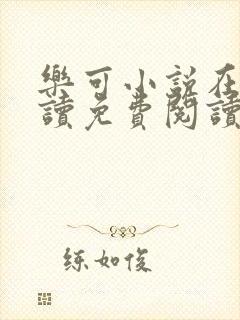 樂可小說在
讀免費閱讀
練如俊